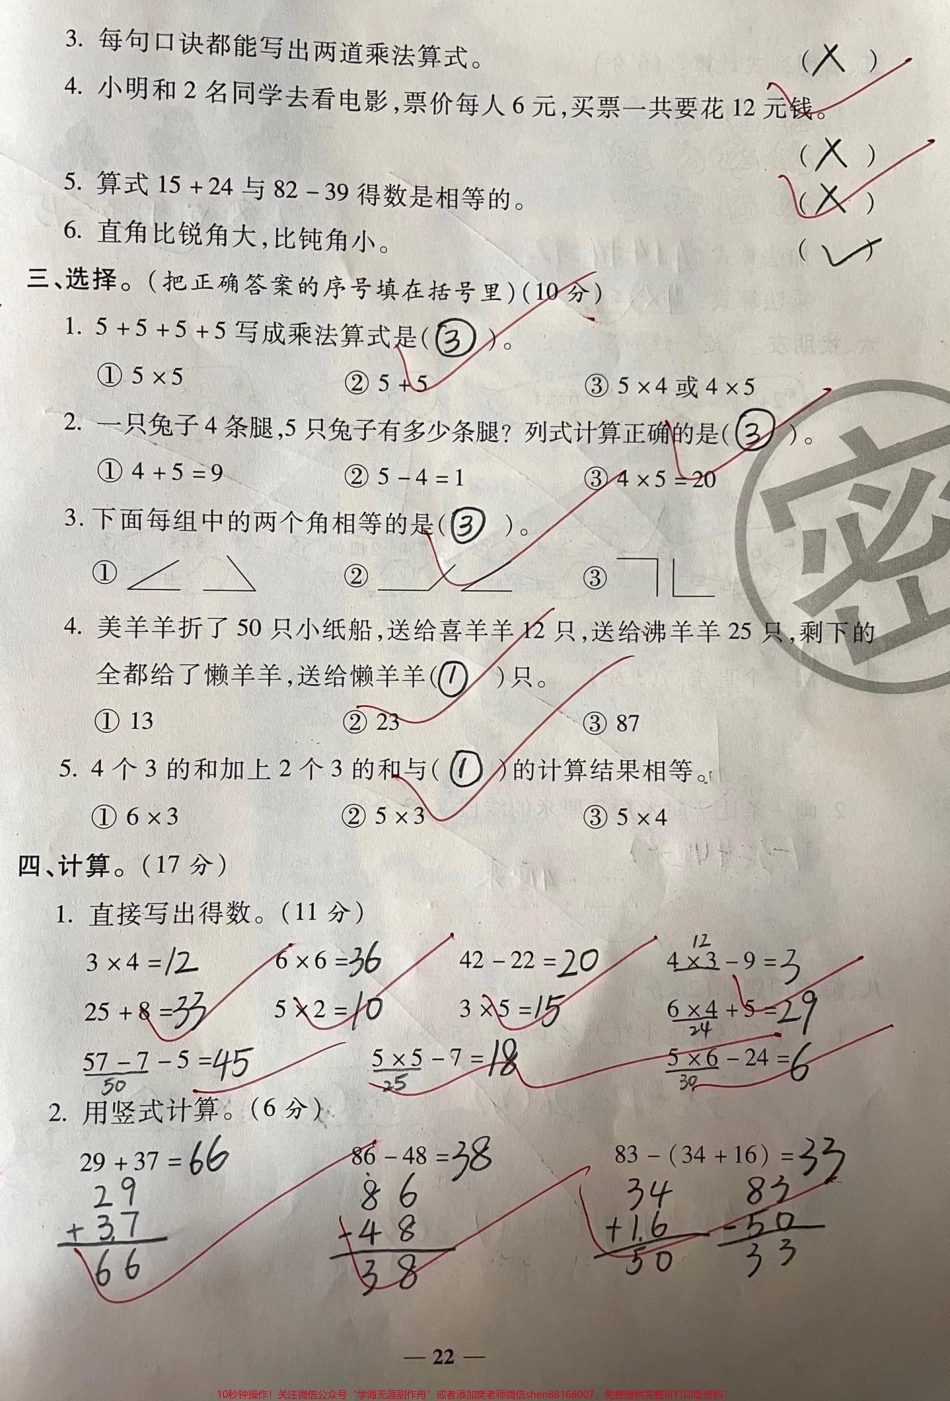 3. 每句口诀都能写出两道乘法算式。 (X)
4. 小明和2名同学去看电影,票价每人6元,买票一共要花12元钱。
(X)
5. 算式15+24与82-39得数是相等的。 (X)
6. 直角比锐角大,比钝角小。 (✓)
三、选择。(把正确答案的序号填在括号里)(10分)
1. 5+5+5+5写成乘法算式是(③)。
①5×5 ②5+5 ③5×4或4×5
2. 一只兔子4条腿,5只兔子有多少条腿?列式计算正确的是(③)。
①4+5=9 ②5-4=1 ③4×5=20
3. 下面每组中的两个角相等的是(③)。
① ② ③
4. 美羊羊折了50只小纸船,送给喜羊羊12只,送给沸羊羊25只,剩下的
全都给了懒羊羊,送给懒羊羊(①)只。
①13 ②23 ③87
5. 4个3的和加上2个3的和与(①)的计算结果相等。
①6×3 ②5×3 ③5×4
密
四、计算。(17分)
1. 直接写出得数。(11分)
12
3×4=12 6×6=36 42-22=20 4×3-9=3
25+8=33 5×2=10 3×5=15 6×4+5=29
24
57-7-5=45 5×5-7=18 5×6-24=6
50 25 30
2. 用竖式计算。(6分)
29+37=66 86-48=38 83-(34+16)=33
29 86 34 83
+37 -48 +16 -50
66 38 50 33
— 22 —
10秒钟操作!关注微信公众号“学海无涯甜作舟”或者添加樊老师微信shen88168007,免费提供完整可打印版资料!